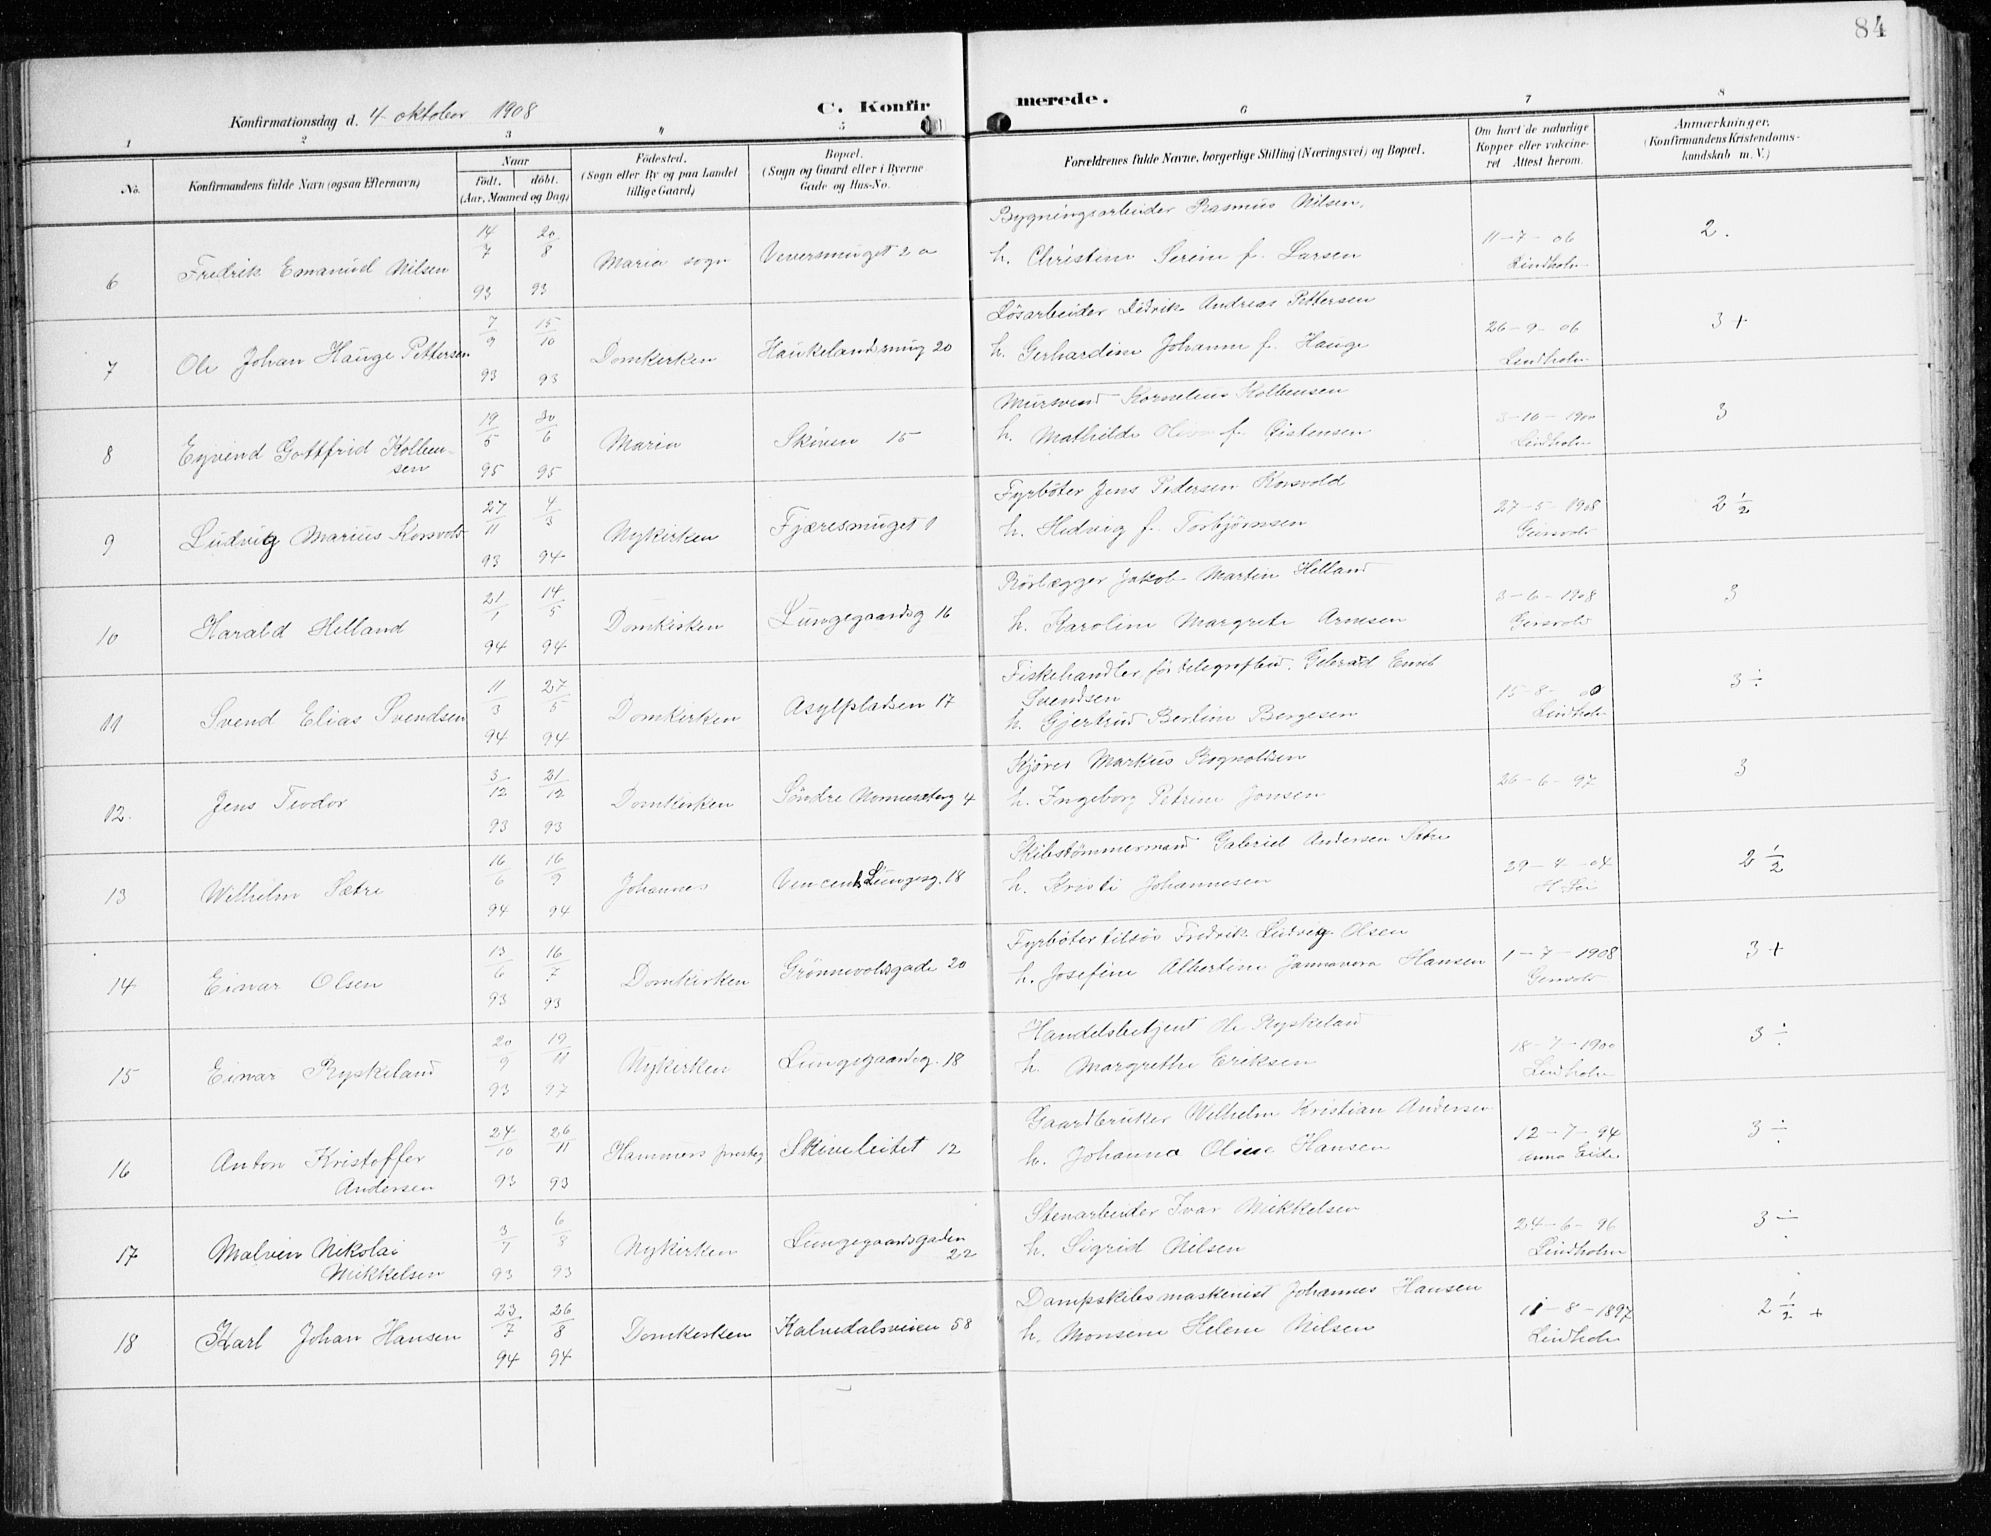 84
Konfirmationsdag d. 4 oktober 1908
C. Konfirmerede.
1 2 3 4 5 6 7 8
No.
Konfirmandens fulde Navn (ogsaa Efternavn)
Naar
födt. döbt.
(Aar, Maaned og Dag)
Födested.
(Sogn eller By og paa Landet
tillige Gaard)
Bopæl.
(Sogn og Gaard eller i Byerne
Gade og Hus-No.
Forældrenes fulde Navne, borgerlige Stilling (Næringsvei) og Bopæl.
Om havt de naturlige
Kopper eller vakcine-
ret Attest herom.
Anmærkninger.
(Konfirmandens Kristendoms-
kundskab m. V.)
6 Fredrik Emanuel Nilsen 14/7 93 20/8 93 Maria sogn Veversmuget 2 a
Bygningsarbeider Rasmus Nilsen,
h. Christine Serine f. Larsen
11-7-06 Lindholm 2.
7 Ole Johan Hauge Pettersen 7/9 93 15/10 93 Domkirken Haukelandsmug 20
Lösarbeider Didrik Andreas Pettersen
h. Gerhardine Johanne f. Hauge
26-9-06 Lindholm 3+
8 Eyvind Gottfrid Kolben-
sen 19/5 95 30/6 95 Maria Skiven 15
Mursvend Kornelius Kolbensen
h. Mathilde Oline f. Gistensen
3-10-1900 Lindholm 3
9 Ludvig Marius Korsvold 27/11 93 4/3 94 Nykirken Fjæresmuget 1
Fyrböter Jens Pedersen Korsvold
h. Hedvig f. Torbjørnsen
27-5-1908 Geirsvold 2 1/2
10 Harald Helland 21/1 94 14/5 94 Domkirken Lungegaardsg 16
Rörlægger Jakob Martin Helland
h. Karoline Margrete Arnesen
3-6-1908 Geirsvold 3
11 Svend Elias Svendsen 11/3 94 27/5 94 Domkirken Asylpladsen 17
Fiskehandler för telegrafbud. Gerhard Emil
Svendsen
h. Gjertrud Bertine Bergesen
15-8-00 Lindholm 3 ÷
12. Jens Teodor 3/12 93 21/12 93 Domkirken Söndre Nonnesterg 4
Kjörer Markus Rognaldsen
h. Ingeborg Petrine Jonsen
26-6-97 3
13 Wilhelm Sætre 16/6 94 16/9 94 Johannes Vincent Lungesg. 18
Skibstömmermand Gabriel Andersen Sætre
h. Kristi Johannesen
29-4-04 2 1/2
14 Einar Olsen 13/6 93 16/7 93 Domkirken Grönnevoldsgade 20
Fyrböter tilsös Fredrik Ludvig Olsen
h. Josefine Albertine Hansen
1-7-1908 Geirsvold 3+
15 Einar Ryskeland 20/9 93 19/11 97 Nykirken Lungegaardsg. 18
Handelsbetjent Ole Ryskeland
h. Margrethe Eriksen
18-7-1900 Lindholm 3 ÷
16 Anton Kristoffer
Andersen 24/10 93 26/11 93 Hammers presteg Skiveleitet 12
Gaardbruker Wilhelm Kristian Andersen
h. Johanna Oline Hansen
12-7-94 Anna Eide 3 ÷
17 Malvin Nikolai
Mikkelsen 3/7 93 6/8 93 Nykirken Lungegaardsgaden
22
Stenarbeider Ivar Mikkelsen
h. Sigrid Nilsen
24-6-96 Lindholm 3 ÷
18 Karl Johan Hansen 23/7 94 26/8 94 Domkirken Kalvedalsveien 58
Dampskibsmaskinist Johannes Hansen
h. Monsine Helene Nilsen
11-8-1897 Lindholm 2 1/2 +